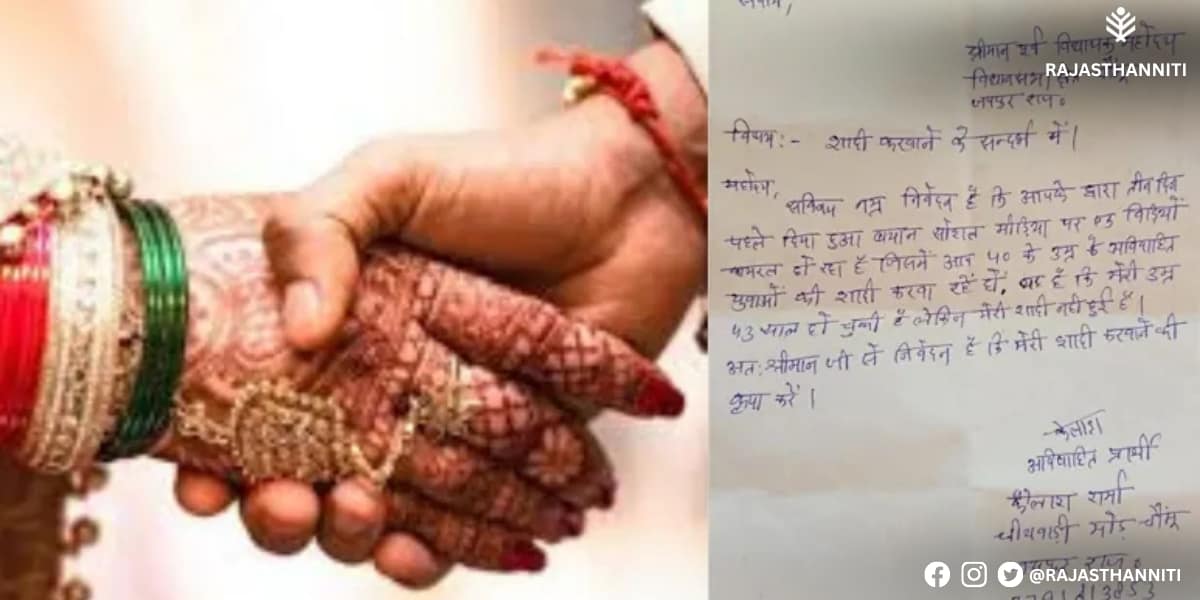 सेवामें,
श्रीमान पूर्व विधायक महोदय
RAJASTHANNITI
विधानसभा क्षेत्र
जयपुर राज०
विषय:- शादी करवाने के सन्दर्भ में।
महोदय,
सविनय नम्र निवेदन है कि आपके द्वारा तीन दिन
पहले दिया हुआ बयान सोशल मीडिया पर
हो रहा है जिसमें आप 40 के उम्र के अविवाहित
युवाओं की शादी करवा रहें हों, है कि मेरी उम्र
43 साल हो चुकी है लेकिन मेरी शादी नहीं हुई है।
अत: श्रीमान जी से निवेदन है कि मेरी शादी करवाने की
कृपा करें।
कैलाश
अविवाहित प्रार्थी
कैलाश शर्मा
चीथवाड़ी मोड़ चौमू
जयपुर राज०
@RAJASTHANNITI